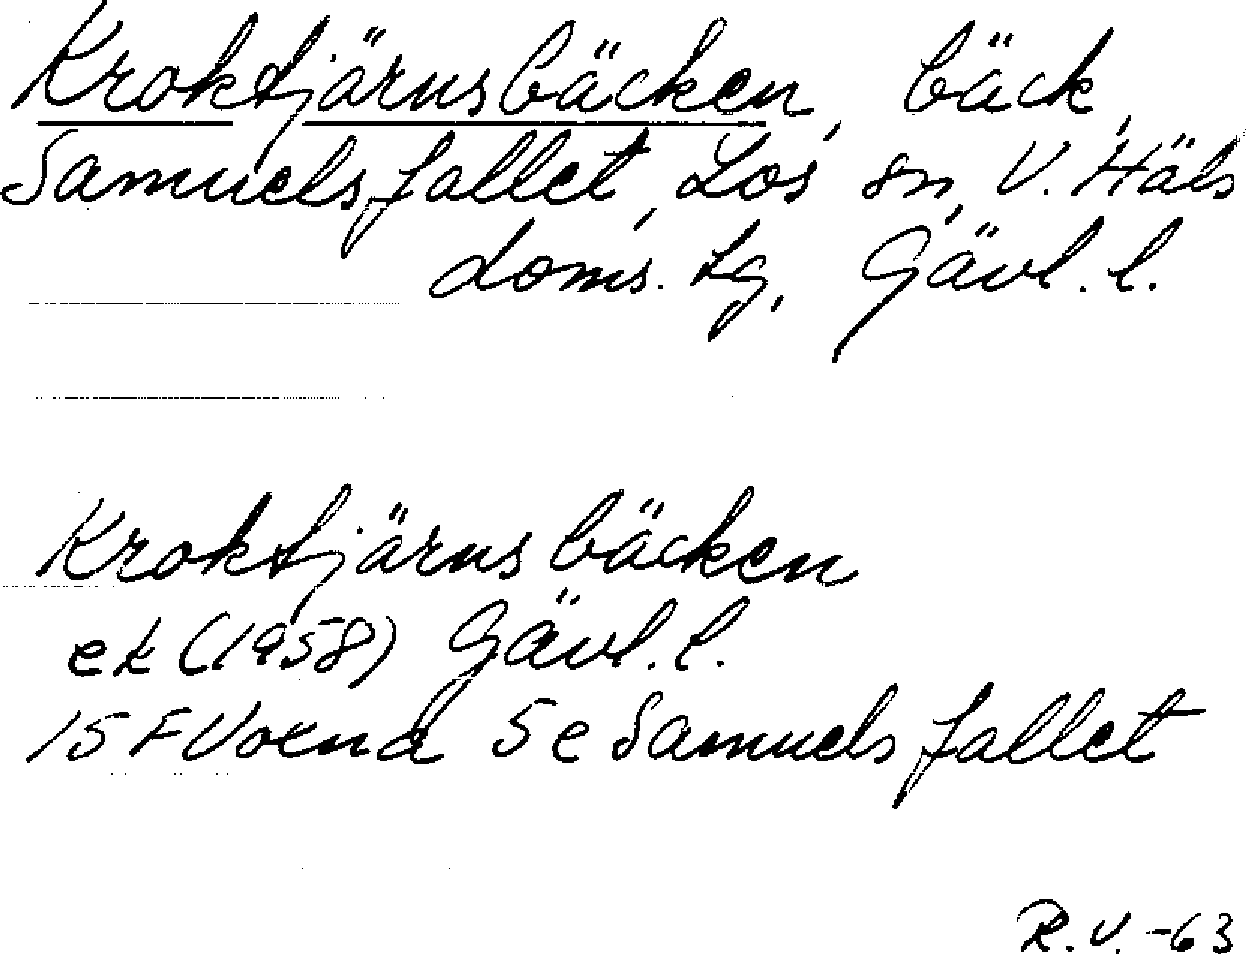 Kroktjärnsbäcken, bäck,
Samuelsfallet, Los sn, V. Häls
doms. tg, Gävl. l.
Kroktjärnsbäcken
ek (1958) Gävl. l.
15 F Voxna 5 e Samuelsfallet
R.V. -63